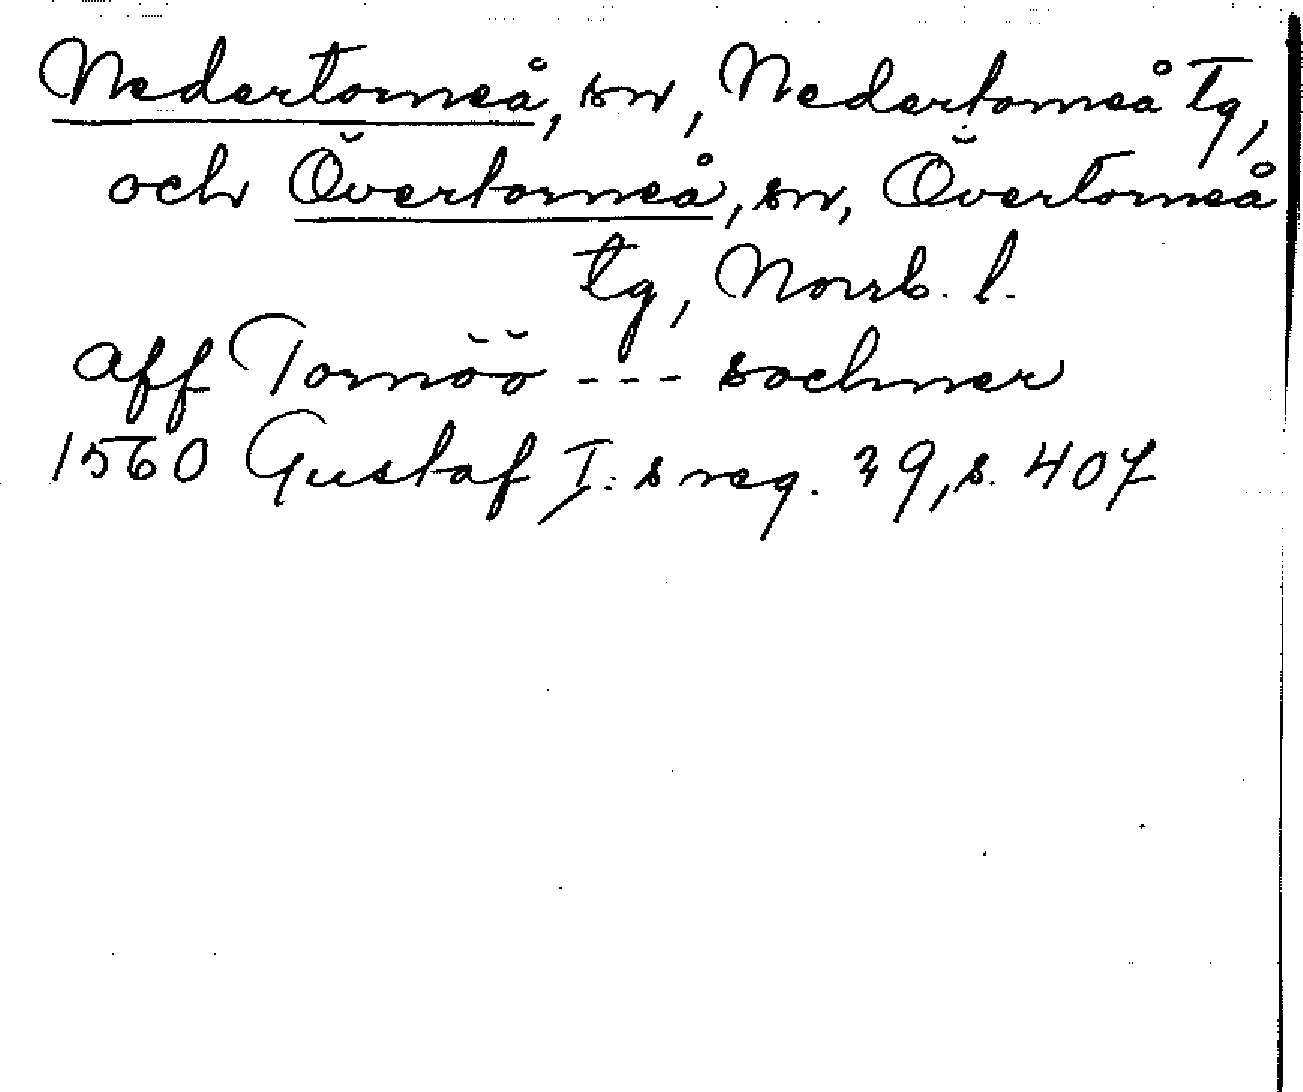 Nedertorneå, sn, Nedertorneå tg,
och Övertorneå, sn, Övertorneå
tg, Norrb. l.
aff Tornöö --- sochner
1560 Gustaf I:s reg. 29, s. 407